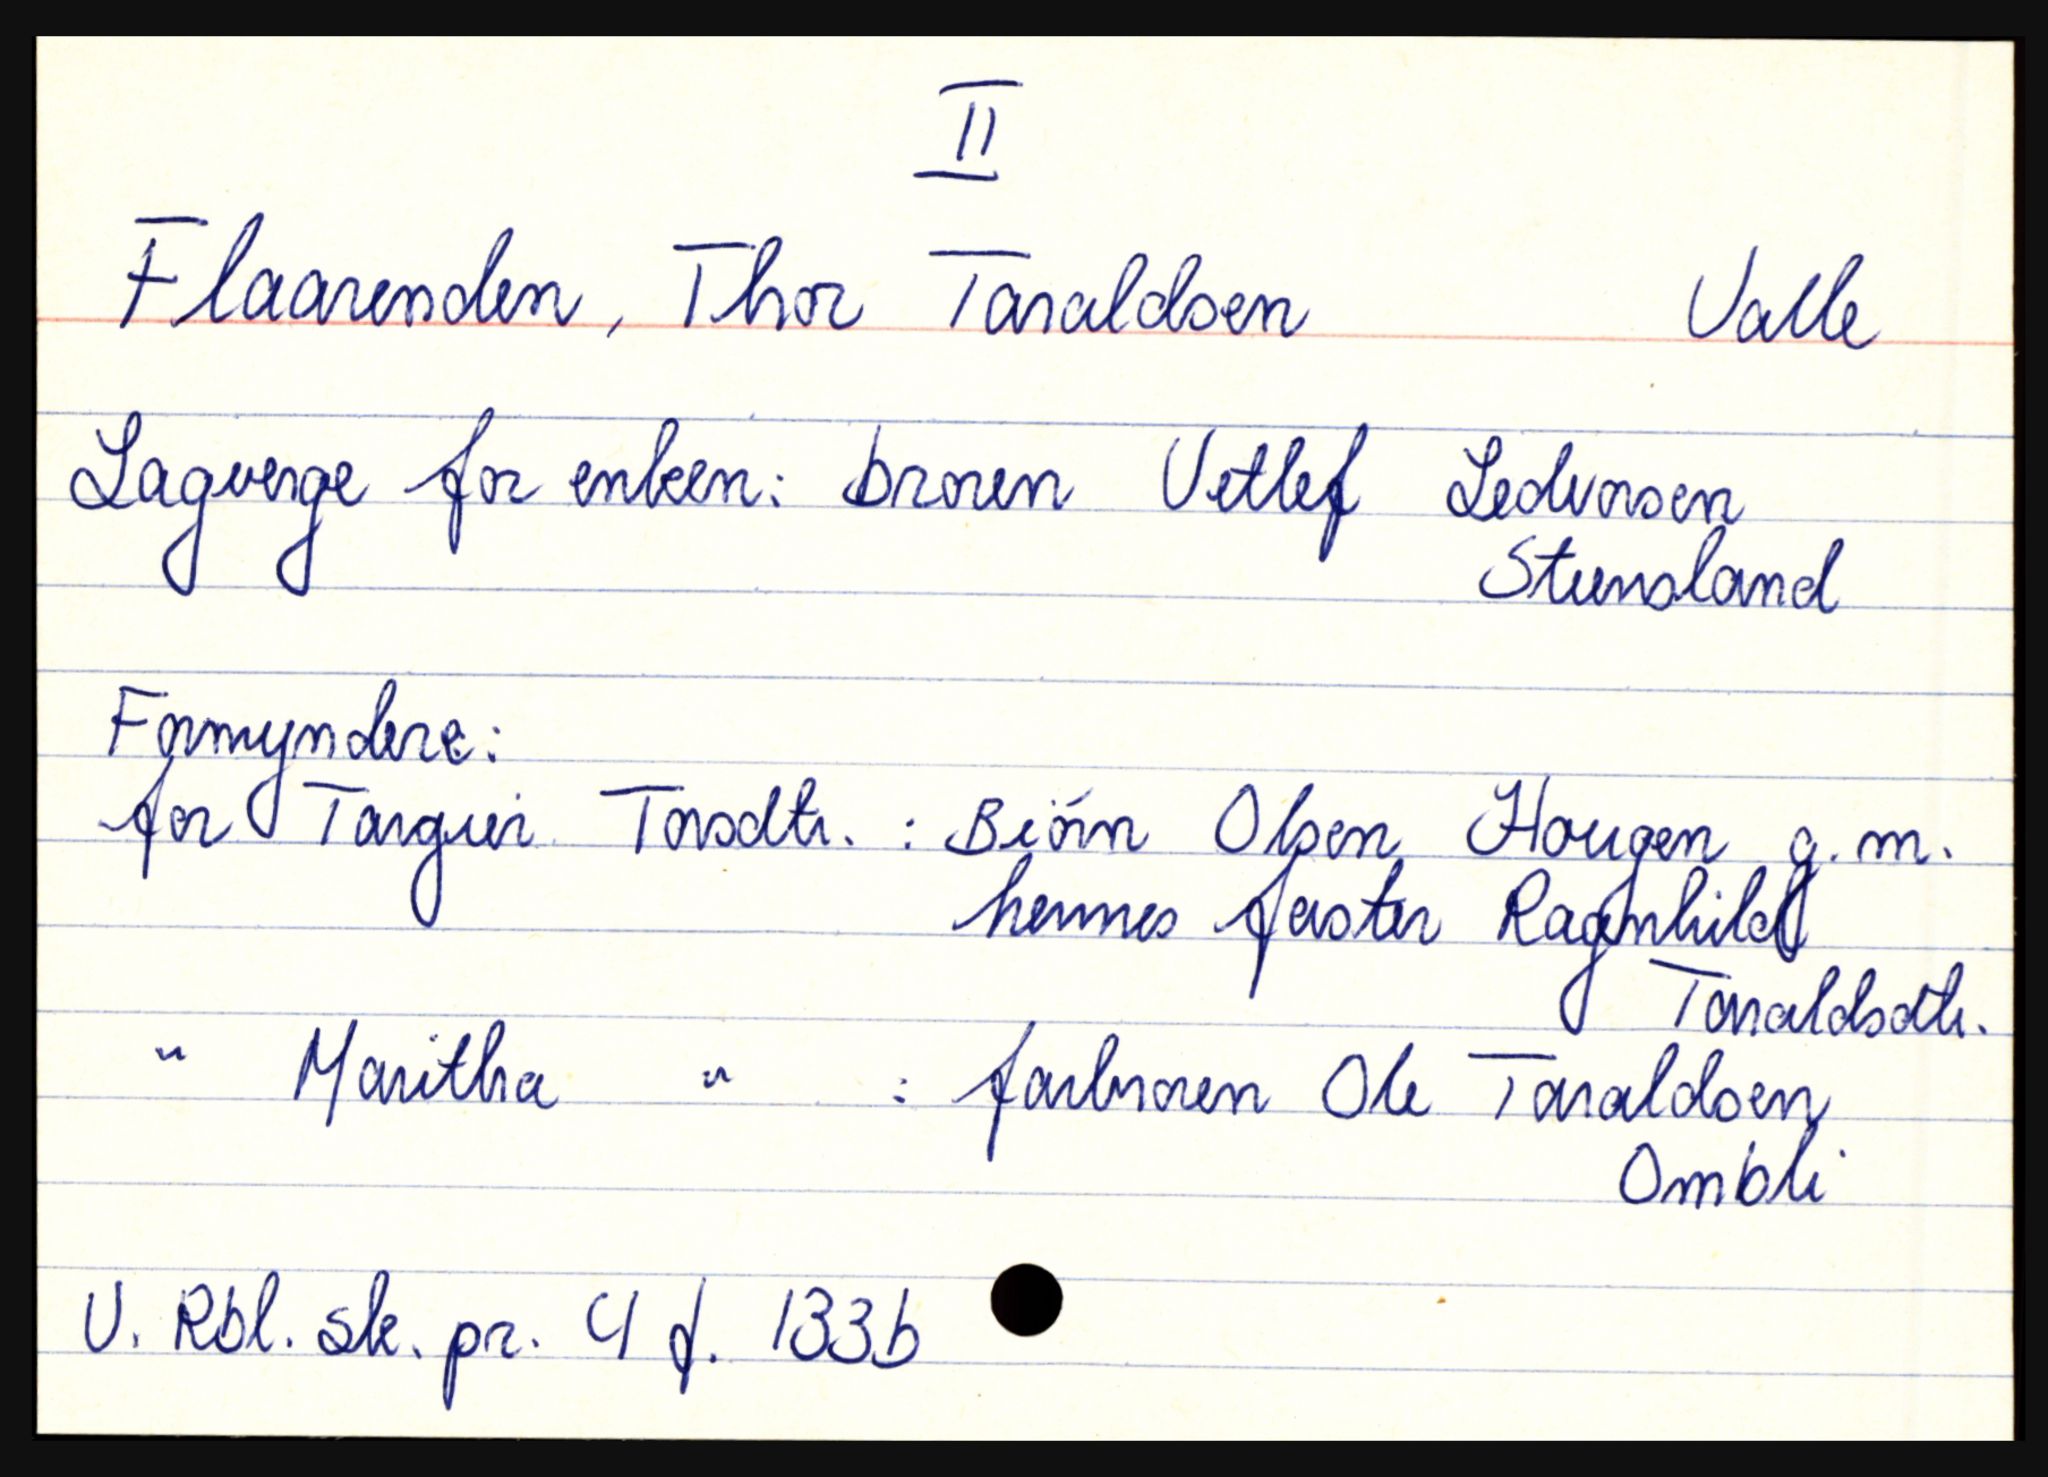 II
Flaarenden, Thor Taraldsen Valle
Lagverge for enken: broren Vetlef Ledvorsen
Stensland
Formyndere:
for Targier Torsdtr. : Biórn Olsen Hougen g.m.
hennes faster Ragnhild
Taraldsdtr.
" Maritha " : farbroren Ole Taraldsen
Ombli
V. Rbl. sk. pr. 4 f. 133b